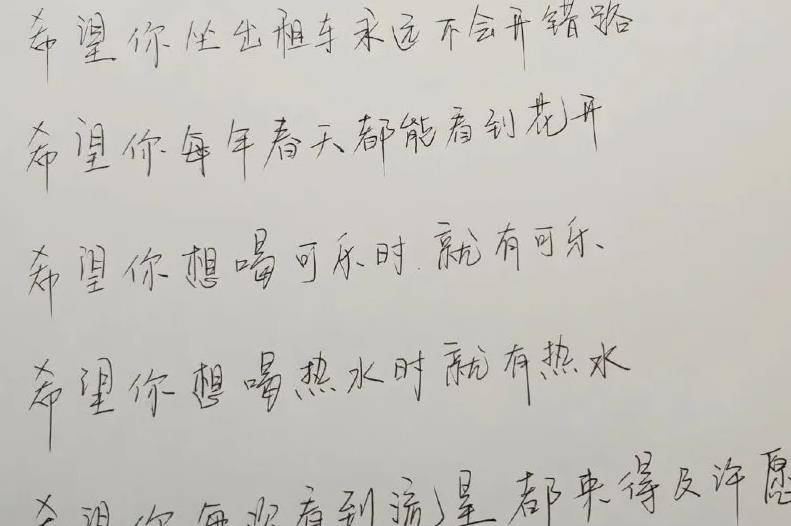 希望你坐出租车永远不会开错路
希望你每年春天都能看到花开
希望你想喝可乐时就有可乐
希望你想喝热水时就有热水
希望你每次看到流星都来得及许愿